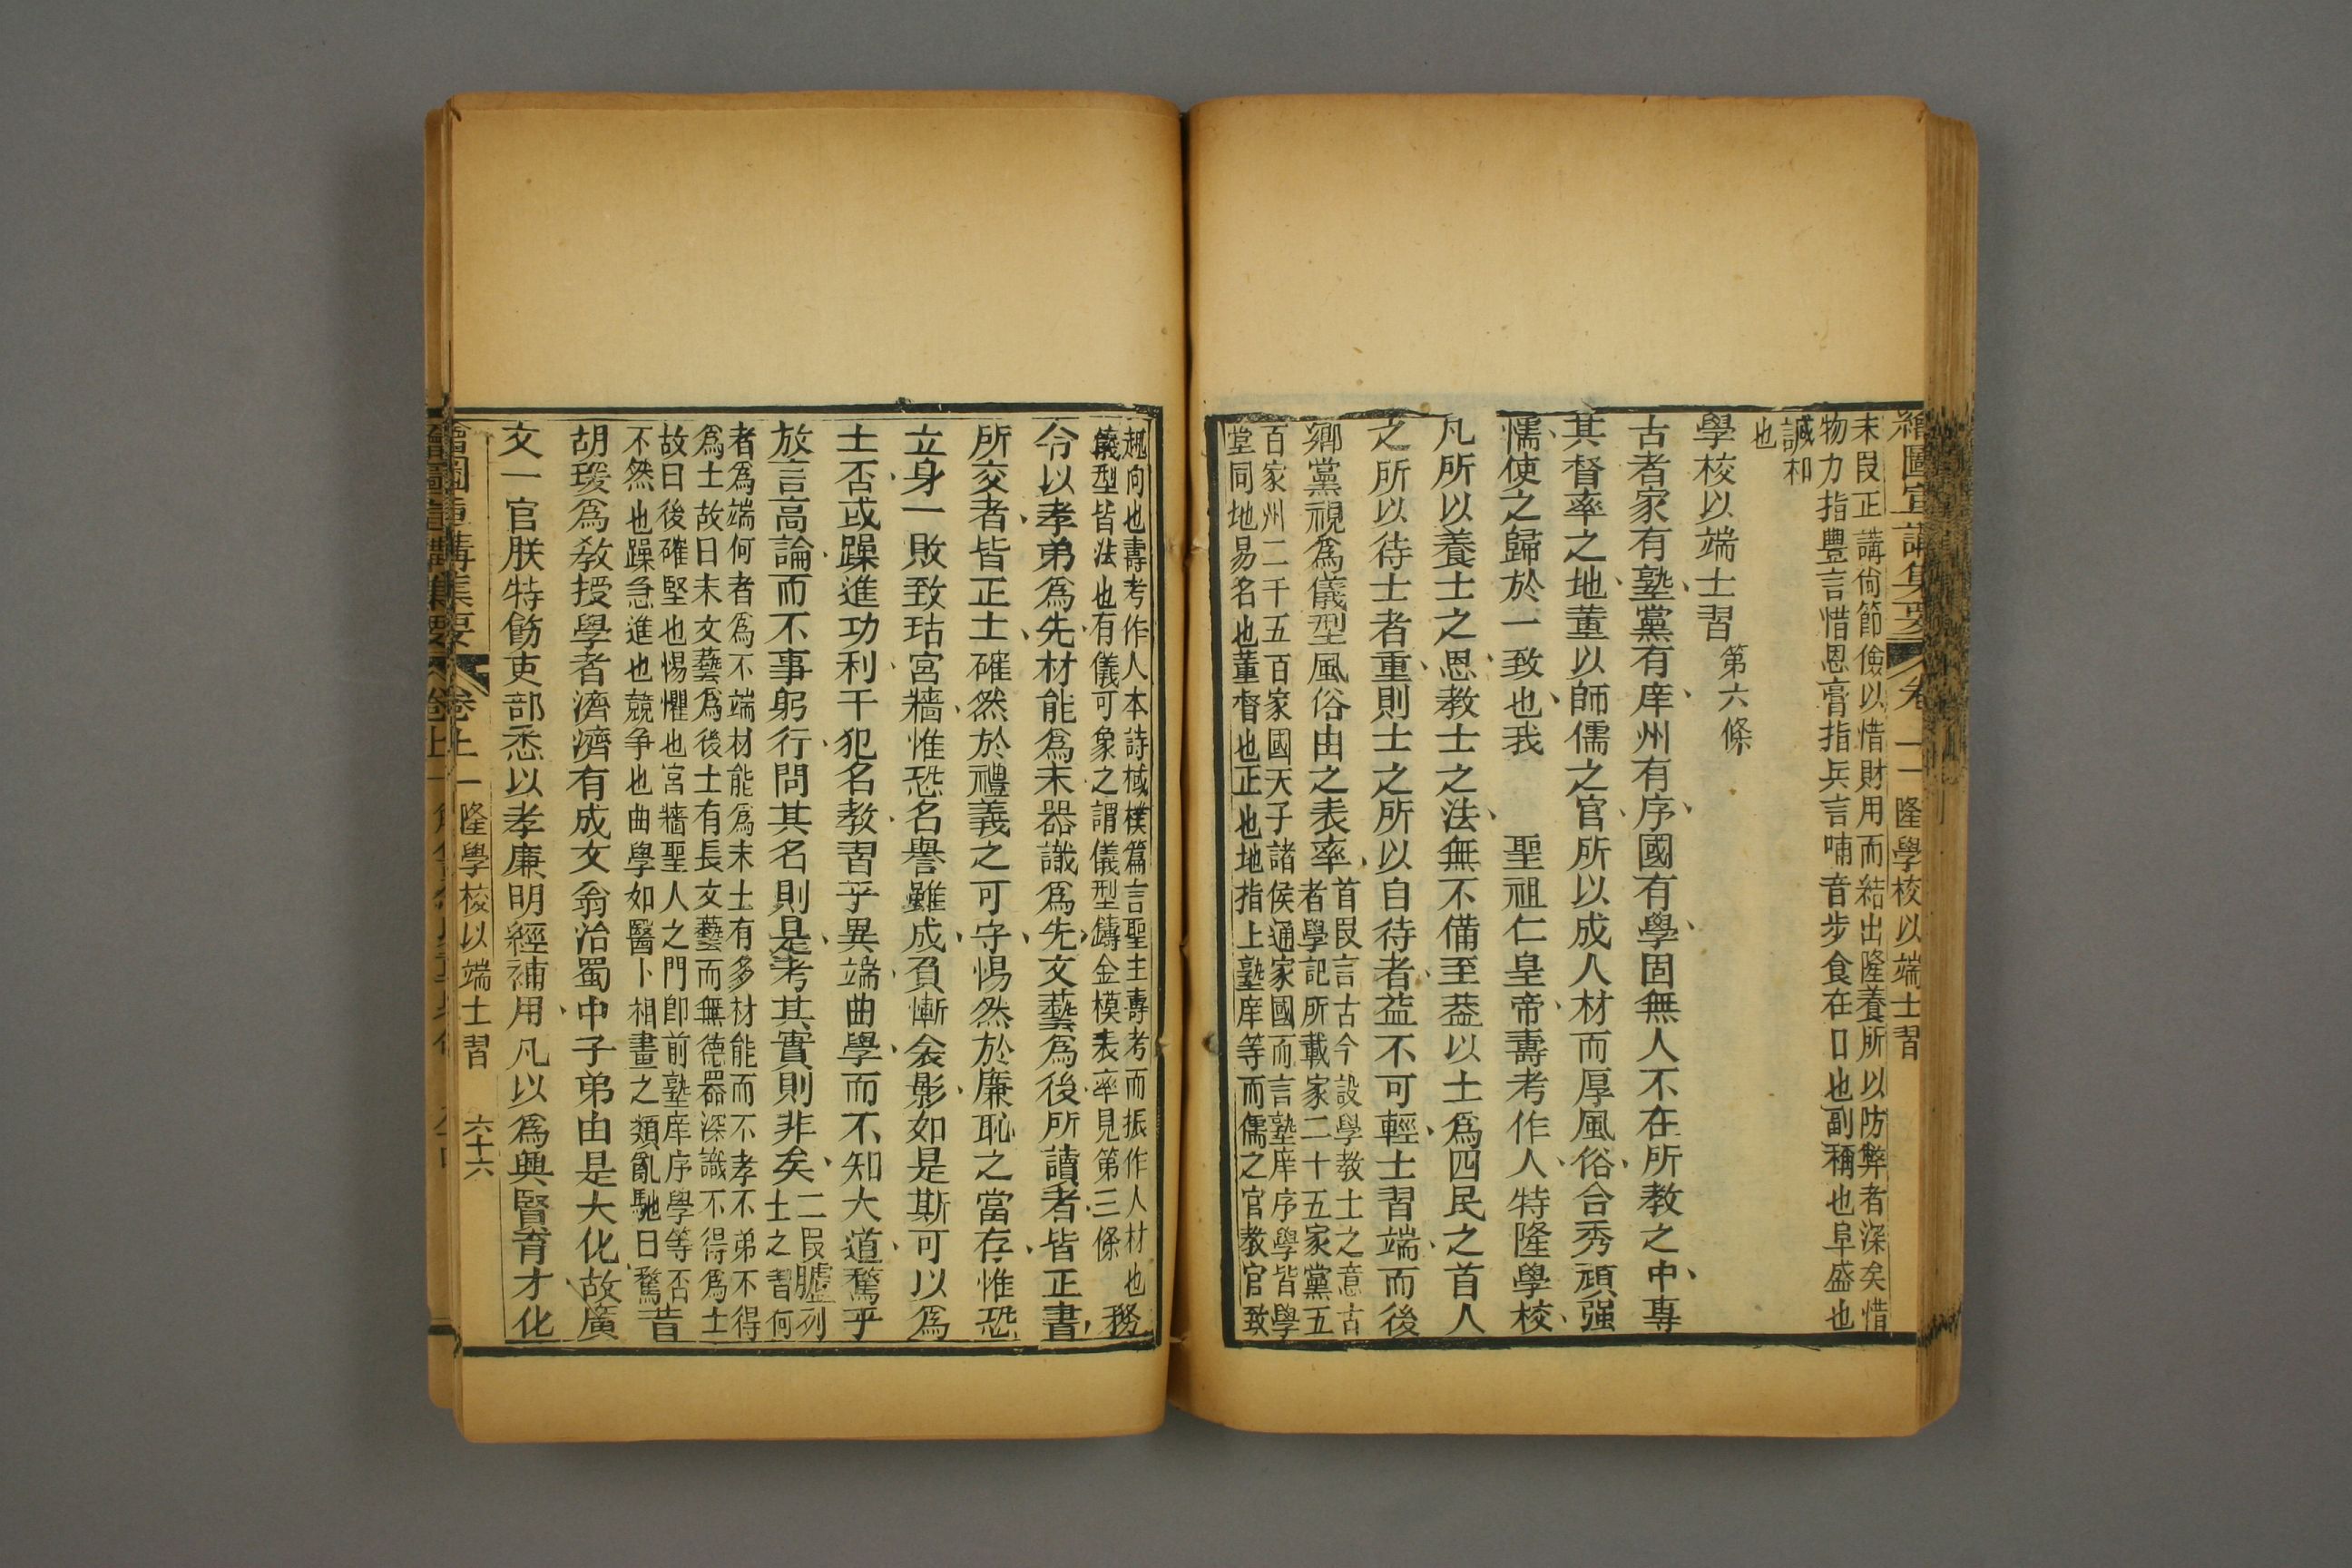 繪圖宣講集要 卷 一 隆學校以端士習
末叚正講尙節儉以惜財用而結出隆養所以防弊者深矣惜
物力指豐言惜恩膏指兵言哺音步食在口也副稱也阜盛也
諴和
也
學校以端士習 第六條
古者家有塾黨有庠州有序國有學固無人不在所教之中專
其督率之地董以師儒之官所以成人材而厚風俗合秀頑强
懦使之歸於一致也我 聖祖仁皇帝壽考作人特隆學校
凡所以養士之恩教士之法無不備至葢以士爲四民之首人
之所以待士者重則士之所以自待者益不可輕士習端而後
鄉黨視爲儀型風俗由之表率
首叚言古今設學教士之意古
者學記所載家二十五家黨五
百家州二千五百家國天子諸侯通家國而言塾庠序學皆學
堂同地易名也董督也正也地指上塾庠等而儒之官教官致
趨向也壽考作人本詩棫樸篇言聖主壽考而振作人材也
儀型皆法也有儀可象之謂儀型鑄金模表率見第三條
務
令以孝弟爲先材能爲末器識爲先文藝爲後所讀者皆正書
所交者皆正士確然於禮義之可守惕然於廉恥之當存惟恐
立身一敗致玷宮牆惟恐名譽雖成負慚衾影如是斯可以爲
士否或躁進功利干犯名教習乎異端曲學而不知大道騖乎
放言高論而不事躬行問其名則是考其實則非矣
二叚臚列
士之習何
者爲端何者爲不端材能爲末士有多材能而不孝不弟不得
爲士故曰末文藝爲後士有長文藝而無德器深識不得爲士
故曰後確堅也惕懼也宮牆聖人之門卽前塾庠序學等否
不然也躁急進也競争也曲學如醫卜相畫之類亂馳曰騖
昔
胡瑗爲教授學者濟濟有成文翁治蜀中子弟由是大化故廣
文一官朕特飭吏部悉以孝廉明經補用凡以爲興賢育才化
繪圖宣講集要 卷上一 隆學校以端士習 六十六